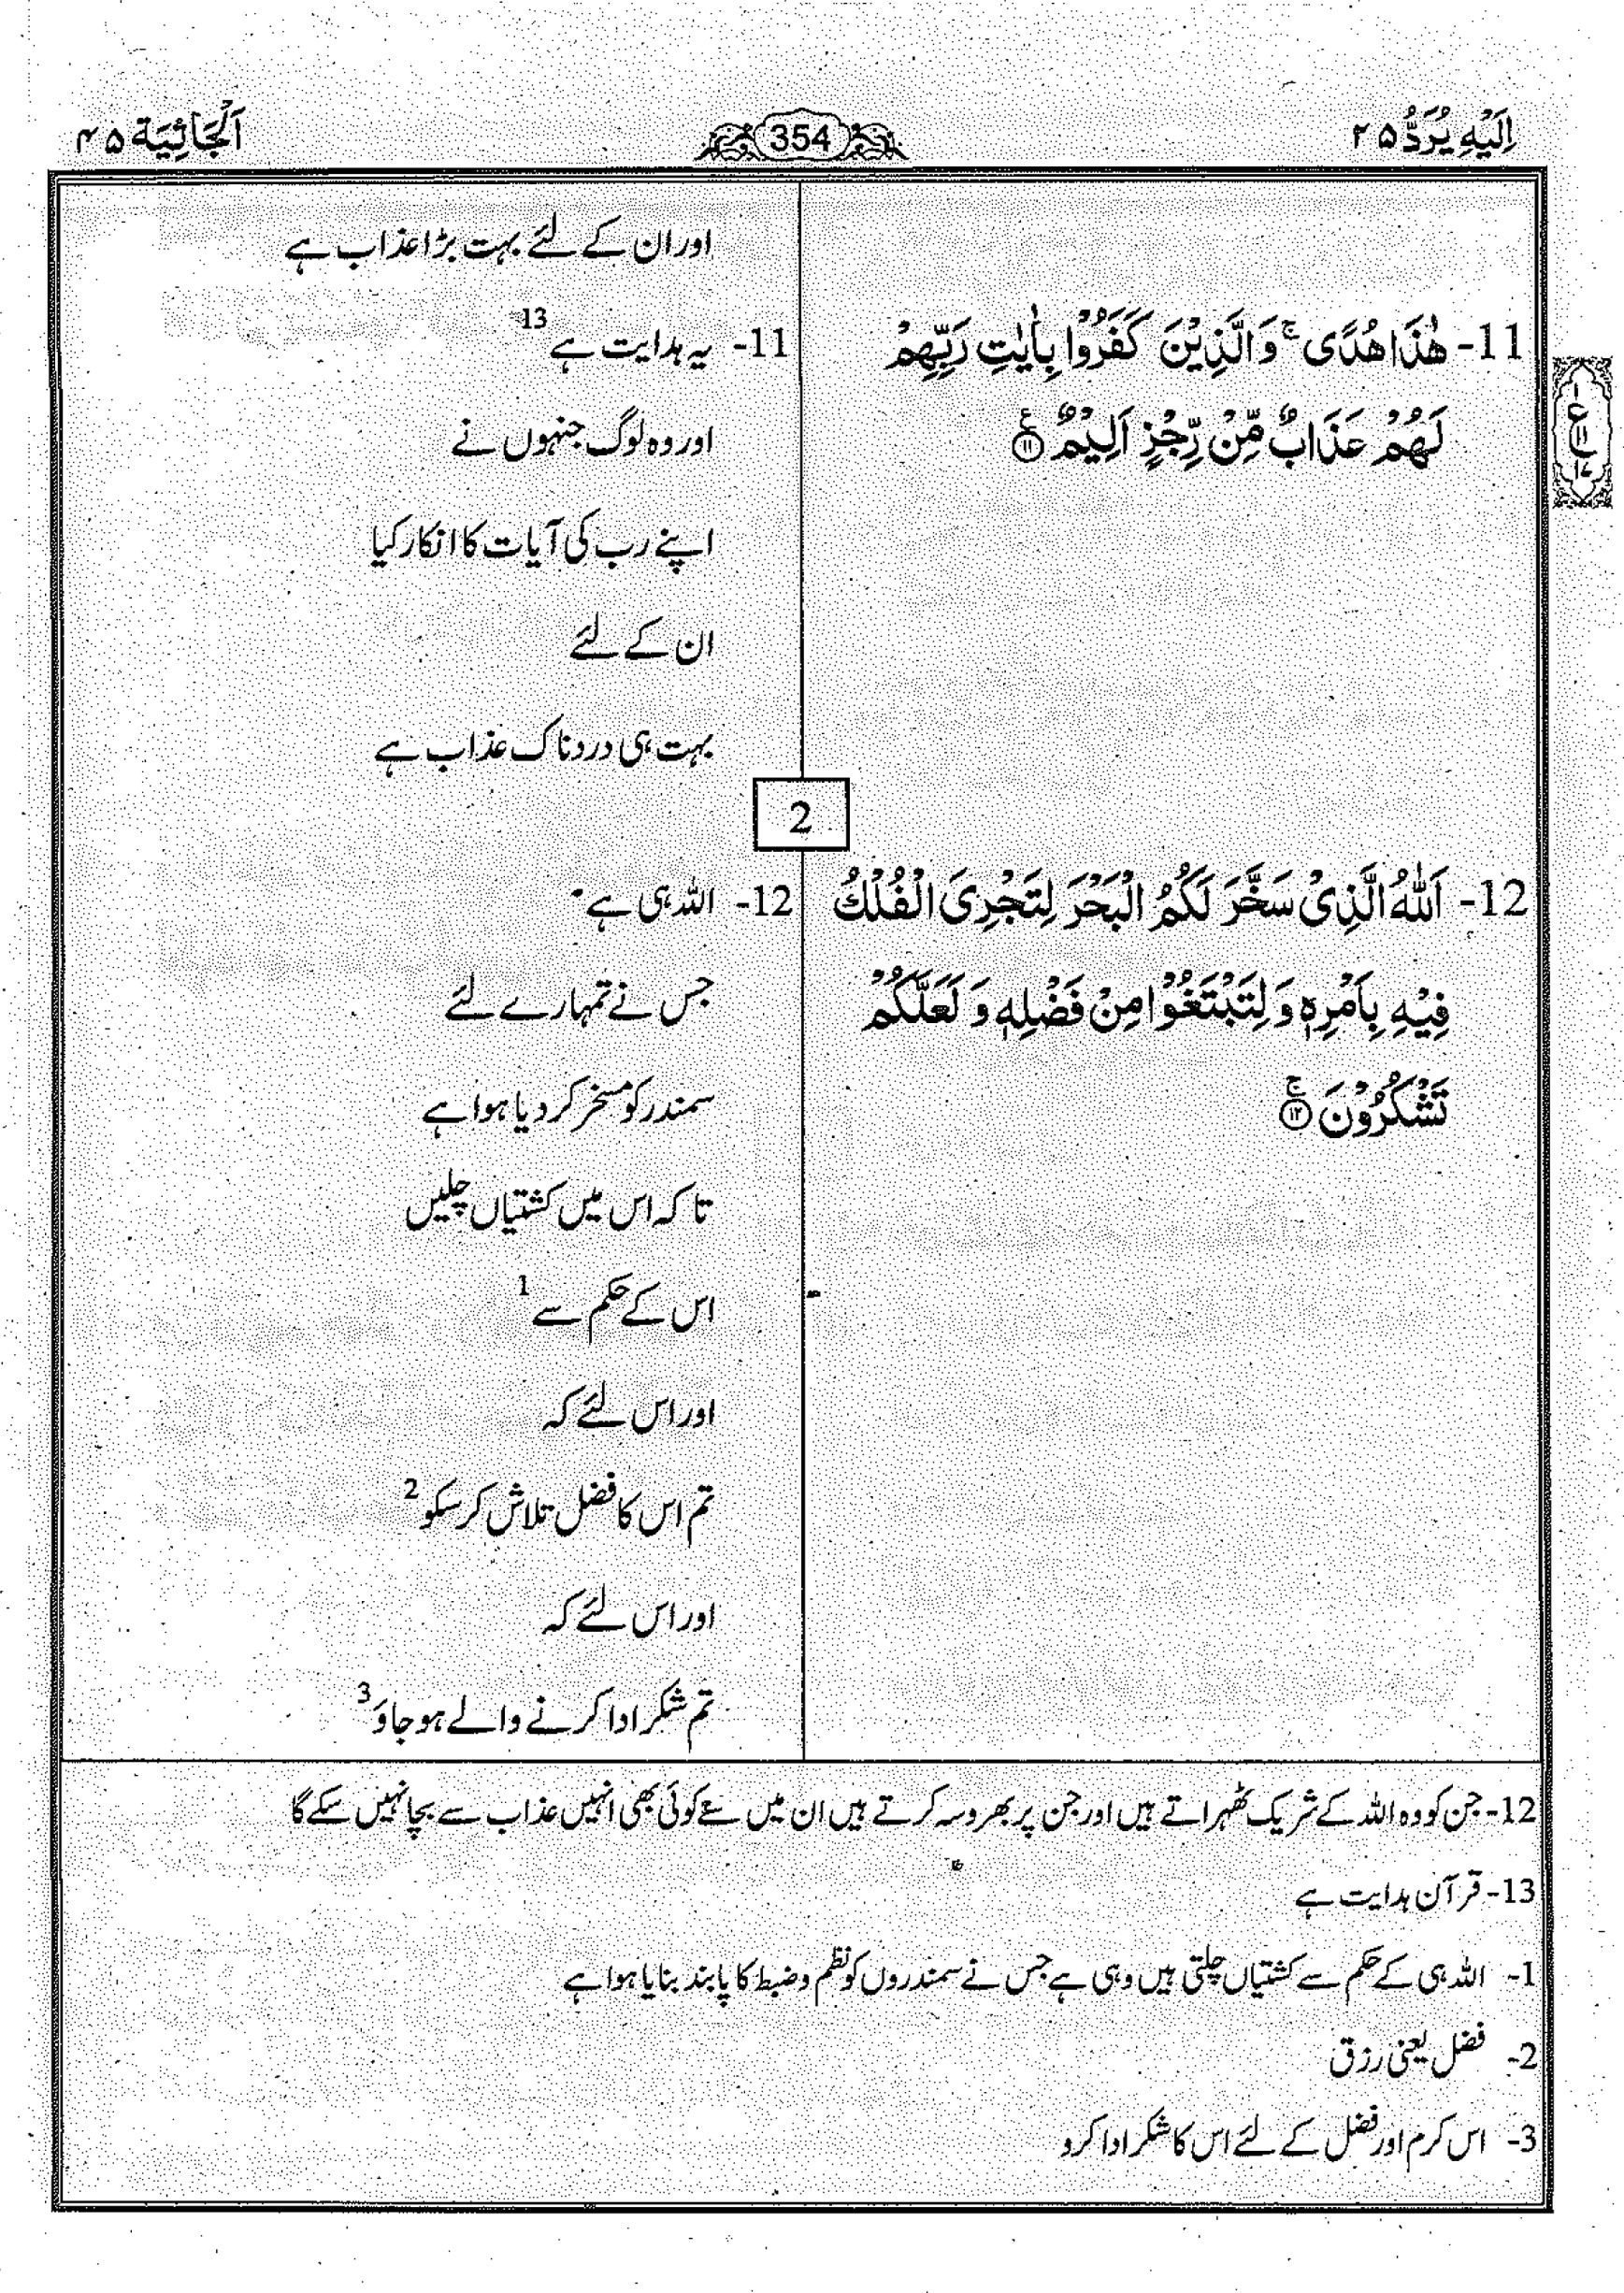 اِلَيْهِ يُرَدُّ ۲۵
354
اَلْجَاثِيَة ۴۵
11- هٰذَا هُدًى ۚ وَالَّذِيْنَ كَفَرُوْا بِاٰيٰتِ رَبِّهِمْ
لَهُمْ عَذَابٌ مِّنْ رِّجْزٍ اَلِيْمٌ ۧ ⑪
ع
۱
۱۱
۱۷
اور ان کے لئے بہت بڑا عذاب ہے
11- یہ ہدایت ہے 13
اور وہ لوگ جنہوں نے
اپنے رب کی آیات کا انکار کیا
ان کے لئے
بہت ہی دردناک عذاب ہے
2
12- اَللّٰهُ الَّذِيْ سَخَّرَ لَكُمُ الْبَحْرَ لِتَجْرِيَ الْفُلْكُ
فِيْهِ بِاَمْرِهٖ وَلِتَبْتَغُوْا مِنْ فَضْلِهٖ وَلَعَلَّكُمْ
تَشْكُرُوْنَ ۚ ⑫
12- اللہ ہی ہے
جس نے تمہارے لئے
سمندر کو مسخر کر دیا ہوا ہے
تاکہ اس میں کشتیاں چلیں
اس کے حکم سے 1
اور اس لئے کہ
تم اس کا فضل تلاش کر سکو 2
اور اس لئے کہ
تم شکر ادا کرنے والے ہو جاؤ 3
12- جن کو وہ اللہ کے شریک ٹھہراتے ہیں اور جن پر بھروسہ کرتے ہیں ان میں سے کوئی بھی انہیں عذاب سے بچا نہیں سکے گا
13- قرآن ہدایت ہے
1- اللہ ہی کے حکم سے کشتیاں چلتی ہیں وہی ہے جس نے سمندروں کو نظم و ضبط کا پابند بنایا ہوا ہے
2- فضل یعنی رزق
3- اس کرم اور فضل کے لئے اس کا شکر ادا کرو